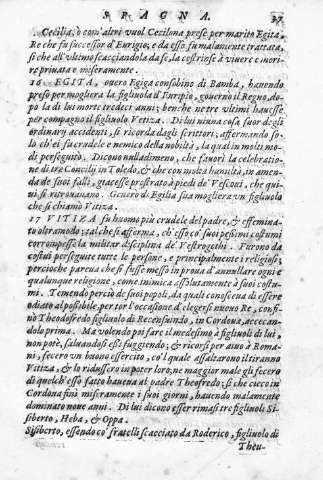 SPAGNA. 37
Cecilia, ò com'altri vuol Cecilona prese per marito Egita,
Re che fu successor d'Eurigio, e da esso fu malamente trattata,
si che all'ultimo scacciandola da se, la costrinse à viuere e morire
priuata e miseramente.
16 EGITA, ouero Egica consobino di Bamba, hauendo
preso per mogliera la figliuola d'Euripio, gouernò il Regno dopo
la di lui morte tredeci anni; benche ne tre vltimi hauesse
per compagno il figliuolo Vetiza. Di lui niuna cosa fuor de gli
ordinarij accidenti, si ricorda da gli scrittori, affermando solo,
ch'ei fu crudele e nemico della nobiltà, la qual in molti modi
perseguitò. Dicono nulladimeno, che fauorì la celebratione
di tre Concilij in Toledo, & che con molta humiltà, in amenda
de suoi falli, giacesse prostrato à piedi de' Vescoui, che quiui
si ritrouauano. Genero di Egilia sua mogliera vn figliuolo
che si chiamò Vitiza.
17 VITIZA fu huomo più crudele del padre, & effeminato
oltra modo: tal che si afferma, ch'esso co' suoi pessimi costumi
corrompesse la militar disciplina de' Vestrogothi. Furono da
costui perseguite tutte le persone, e principalmente i religiosi,
percioche pareua che si fusse messo in proua d'annullare ogni e
qualunque religione, come inimica assolutamente à suoi costumi.
Temendo perciò de' suoi popoli, da quali conosceua di essere
odiato al possibile, per tor l'occasione d'elegersi nuouo Re, confinò
Theodofredo figliuolo di Recensuindo, in Cordoua, acceccandolo
prima. Ma volendo poi fare il medesimo à figliuoli di lui,
non potè, saluandosi essi fuggiendo; & ricorsi per aiuto à Romani,
fecero vn buono essercito, co'l quale assaltarono il tiranno
Vitiza, & lo ridussero in poter loro; ne maggior male gli fecero
di quelch'esso fatto haueua al padre Theofredo; si che cieco in
Cordona finì miseramente i suoi giorni, hauendo malamente
dominato noue anni. Di lui dicono esser rimasi tre figliuoli Sisiberto,
Heba, & Oppa.
Sisiberto, essendo co' fratelli scacciato da Roderico, figliuolo di
Theu-